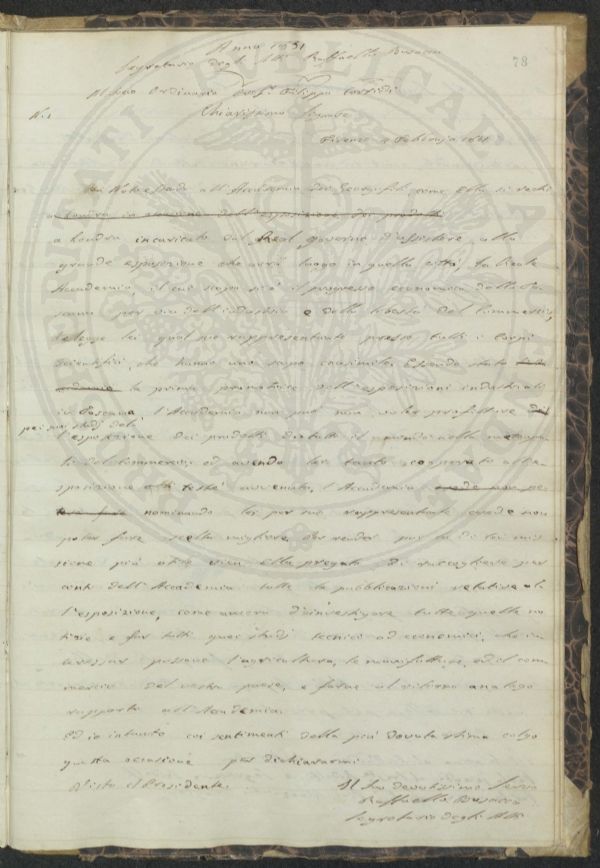 Anno 1851
Segretario degli Atti Raffaello Busacca
78
Al Socio Ordinario Prof. Filippo Corridi
N. 1
Chiarissimo Signore
Firenze 4 Febbrajo 1851
fa Noto essendo all'Accademia dei Georgofili, come Ella si rechi
a Londra in
a Londra incaricato dal Real governo d'assistere alla
grande esposizione che avrà luogo in quella città, la Reale
Accademia, il cui scopo si è il progresso economico della To
scana per via dell'industria e della libertà del Commercio,
elegge lei qual suo rappresentante presso tutti i Corpi
scientifici, che hanno uno scopo consimile. Essendo stata
la prima promotrice dell'esposizioni industriali
in Toscana, l'Accademia non può non voler profittare
pei suoi studj della
l'esposizione dei prodotti di tutto il mondo nella metropo
li del Commercio ed avendo lei tanto cooperato alla
sposizione testè avvenuta, l'Accademia crede non po
nominando lei per suo rappresentante crede non
poter fare scelta migliore. Per render poi la di lei mis
sione più utile viene Ella pregata di raccogliere per
conto dell'Accademia tutte le pubblicazioni relative al
l'esposizione, come ancora d'investigare tutte quelle no
tizie e far tutti quei studj tecnici ed economici, che in
teressar possono l'agricoltura, le manifatture, ed il com
mercio del nostro paese, e farne al ritorno analogo
rapporto all'Accademia.
Ed io intanto coi sentimenti della più dovuta stima colgo
questa occasione per dichiararmi
Visto il Presidente
Il Suo devotissimo Servo
Raffaello Busacca
Segretario degli Atti